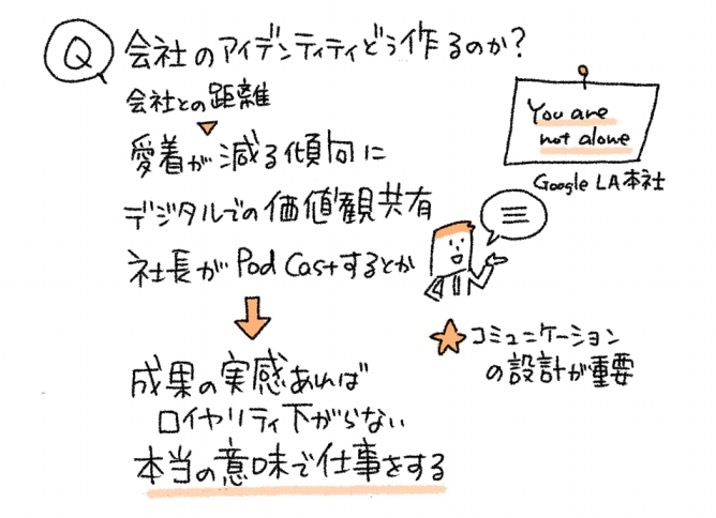 Q 会社のアイデンティティどう作るのか?
会社との距離
愛着が減る傾向に
デジタルでの価値観共有
社長がPod Castするとか
You are
not alone
Google LA本社
コミュニケーション
の設計が重要
成果の実感あれば
ロイヤリティ下がらない
本当の意味で仕事をする